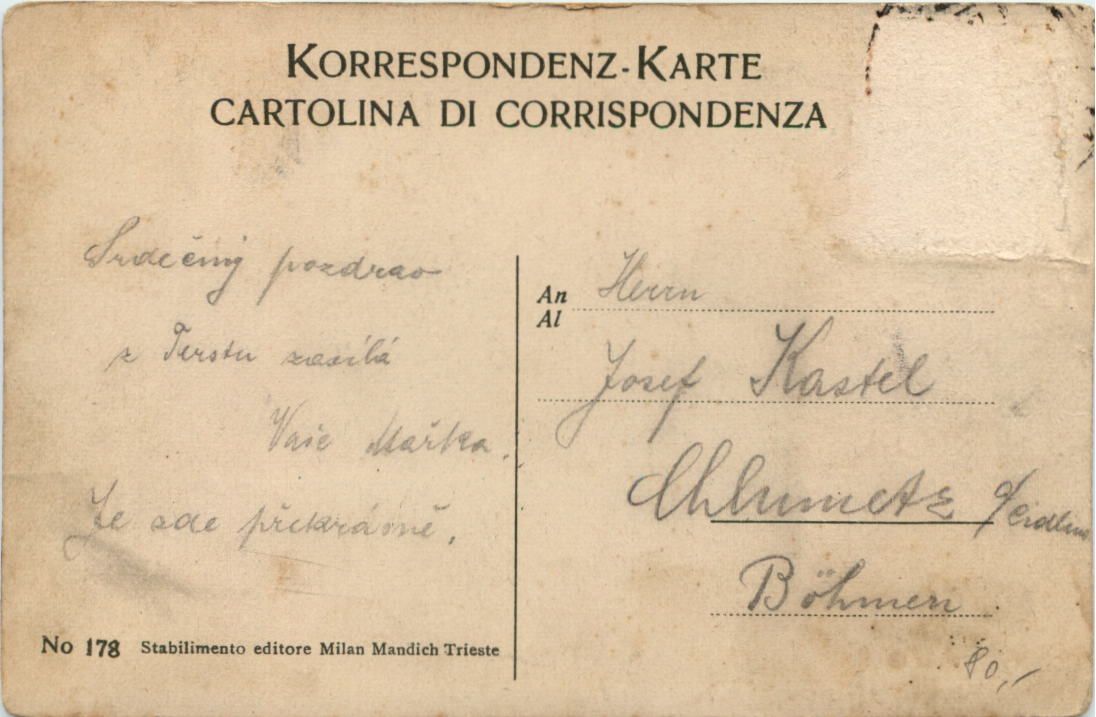 KORRESPONDENZ-KARTE
CARTOLINA DI CORRISPONDENZA
Srdečný pozdrav
z Terstu zasílá
Vaše Mařka.
Je zde překrásně.
An
Al
Herrn
Josef Kastel
Chlumetz a/Cidlina
Böhmen
No 178 Stabilimento editore Milan Mandich Trieste
80,-